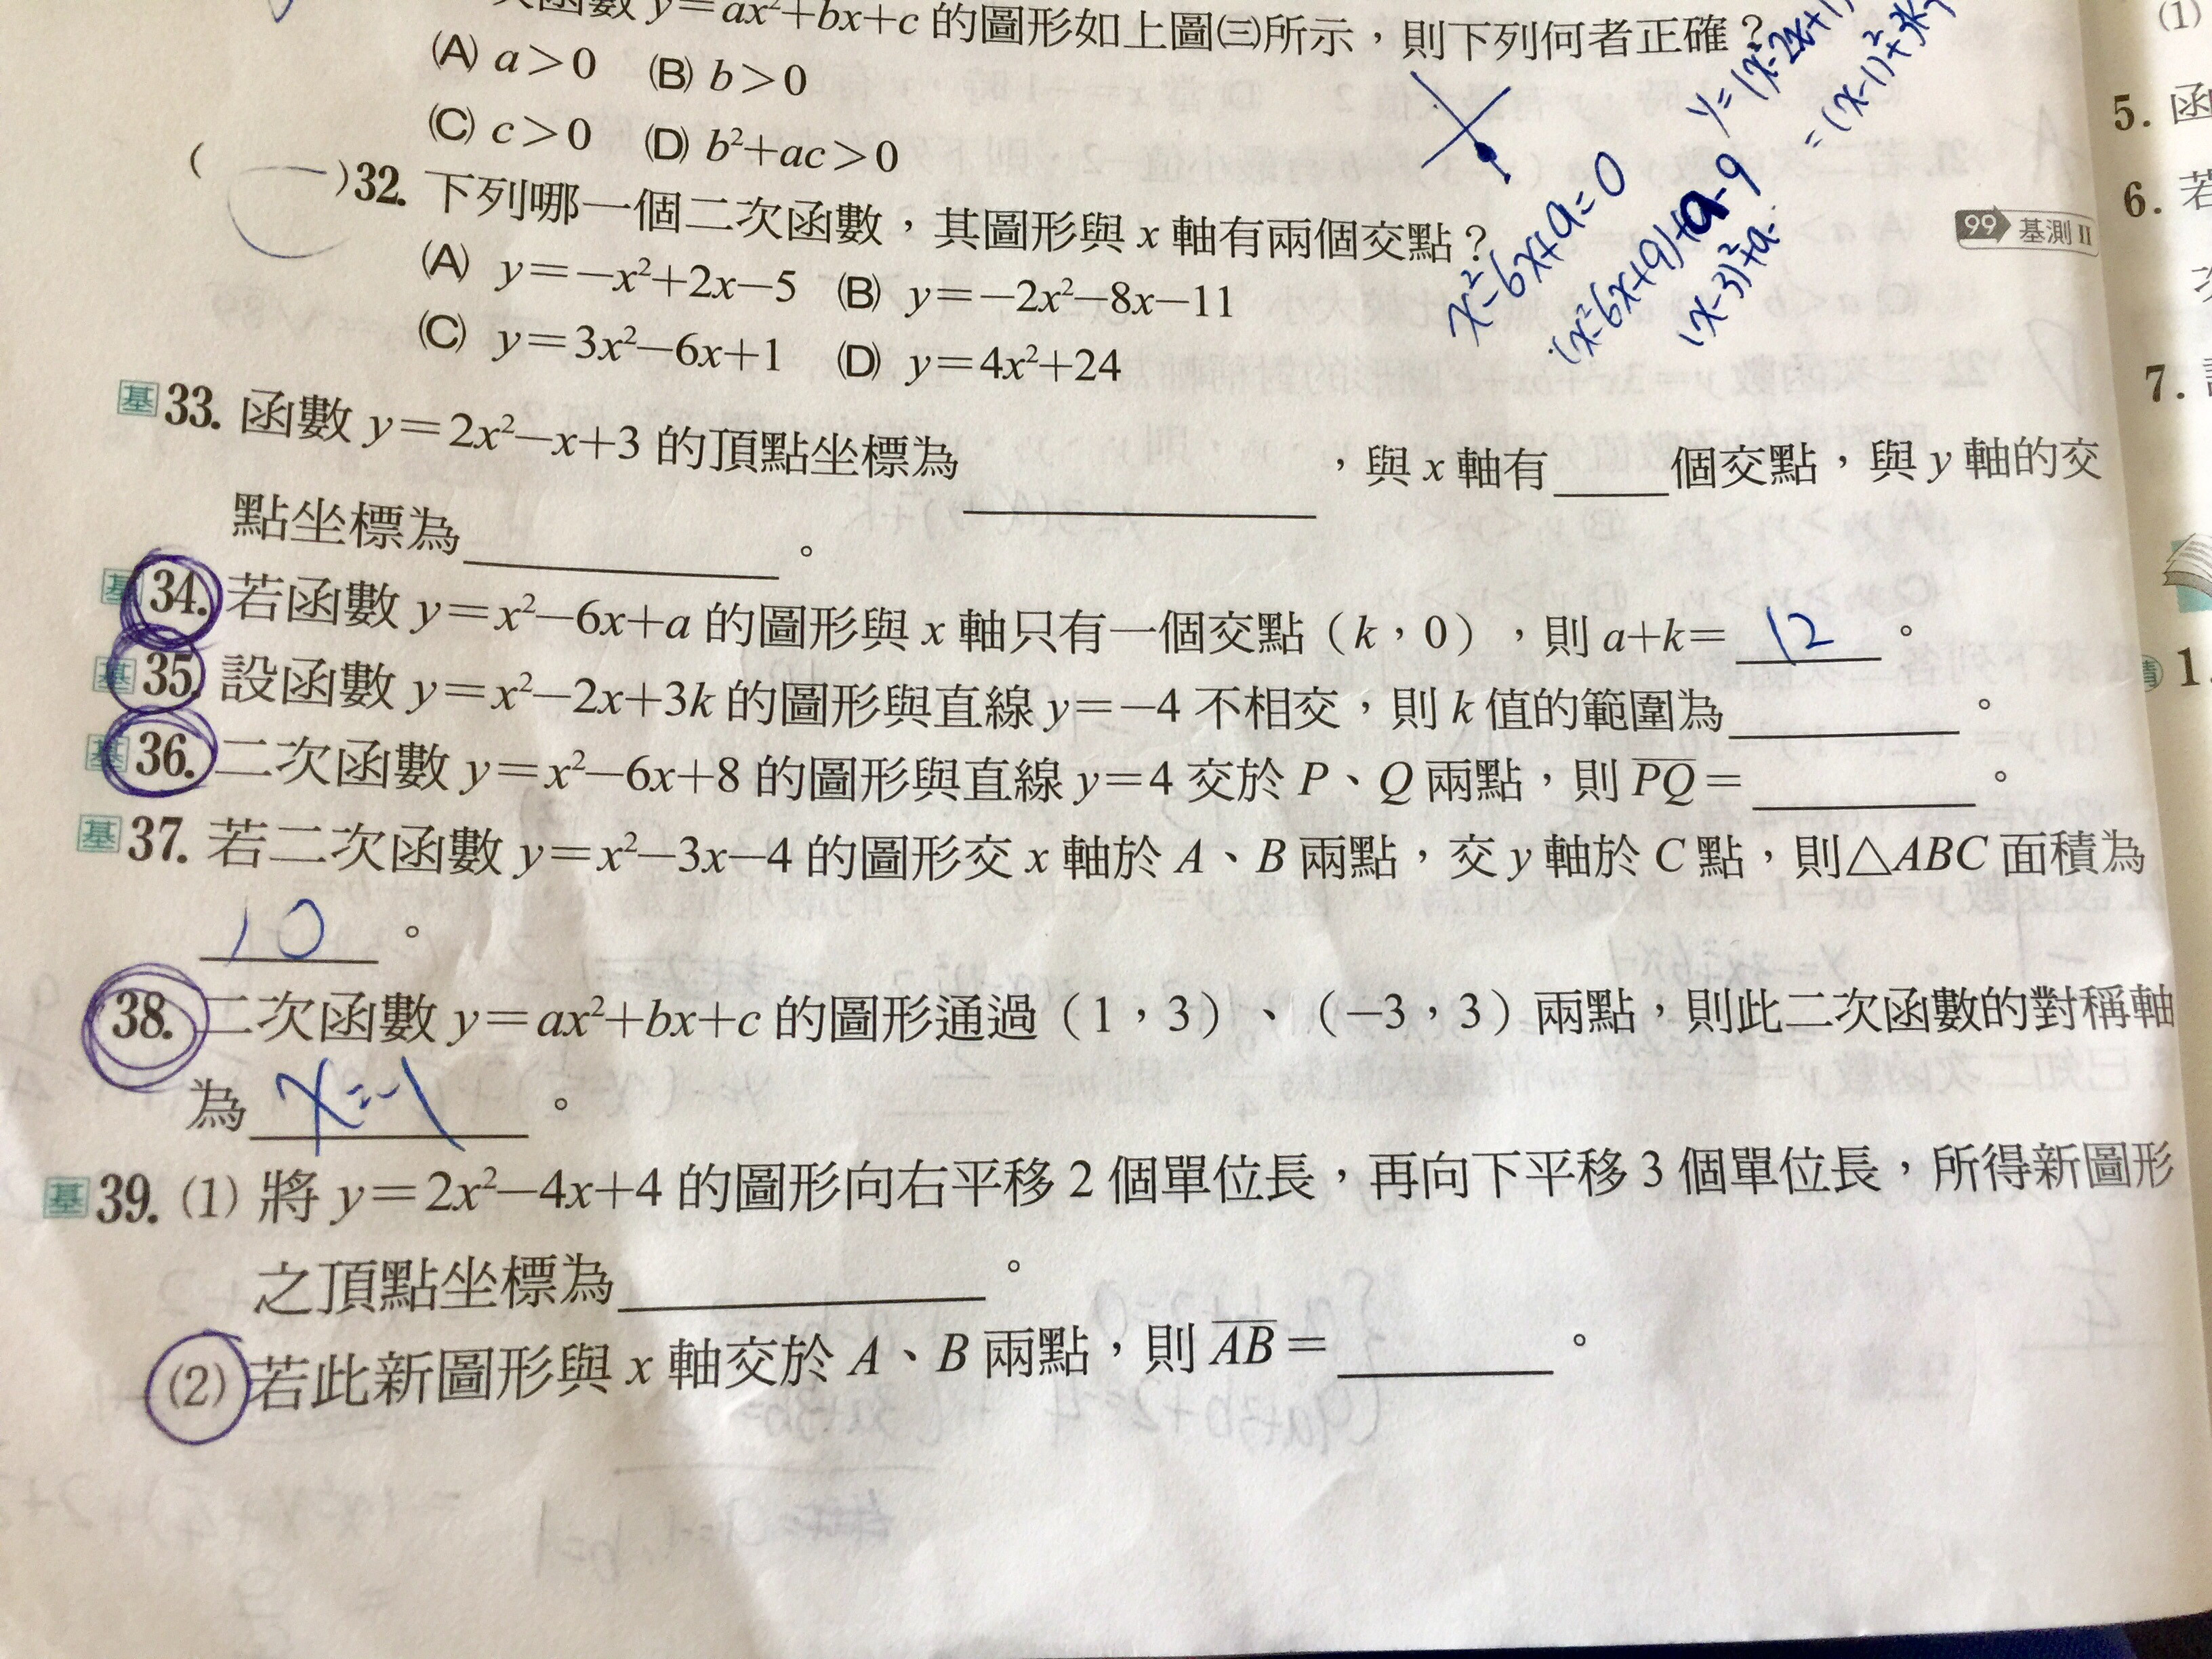 函數 y=ax²+bx+c 的圖形如上圖㈢所示，則下列何者正確？
(A) a>0 (B) b>0
(C) c>0 (D) b²+ac>0
y=(x²-2x+1)
=(x-1)²+3k
( )32. 下列哪一個二次函數，其圖形與 x 軸有兩個交點？
99 基測 II
(A) y=-x²+2x-5 (B) y=-2x²-8x-11
(C) y=3x²-6x+1 (D) y=4x²+24
x²-6x+a=0
(x²-6x+9)+a-9
(x-3)²+a-
基 33. 函數 y=2x²-x+3 的頂點坐標為 ，與 x 軸有 個交點，與 y 軸的交
點坐標為 。
基 34. 若函數 y=x²-6x+a 的圖形與 x 軸只有一個交點（k，0），則 a+k= 12 。
基 35. 設函數 y=x²-2x+3k 的圖形與直線 y=-4 不相交，則 k 值的範圍為 。
基 36. 二次函數 y=x²-6x+8 的圖形與直線 y=4 交於 P、Q 兩點，則 PQ= 。
基 37. 若二次函數 y=x²-3x-4 的圖形交 x 軸於 A、B 兩點，交 y 軸於 C 點，則△ABC 面積為
10 。
38. 二次函數 y=ax²+bx+c 的圖形通過（1，3）、（-3，3）兩點，則此二次函數的對稱軸
為 x=-1 。
基 39. (1) 將 y=2x²-4x+4 的圖形向右平移 2 個單位長，再向下平移 3 個單位長，所得新圖形
之頂點坐標為 。
(2) 若此新圖形與 x 軸交於 A、B 兩點，則 AB= 。
(1)
5. 函
6. 若
7.
1.